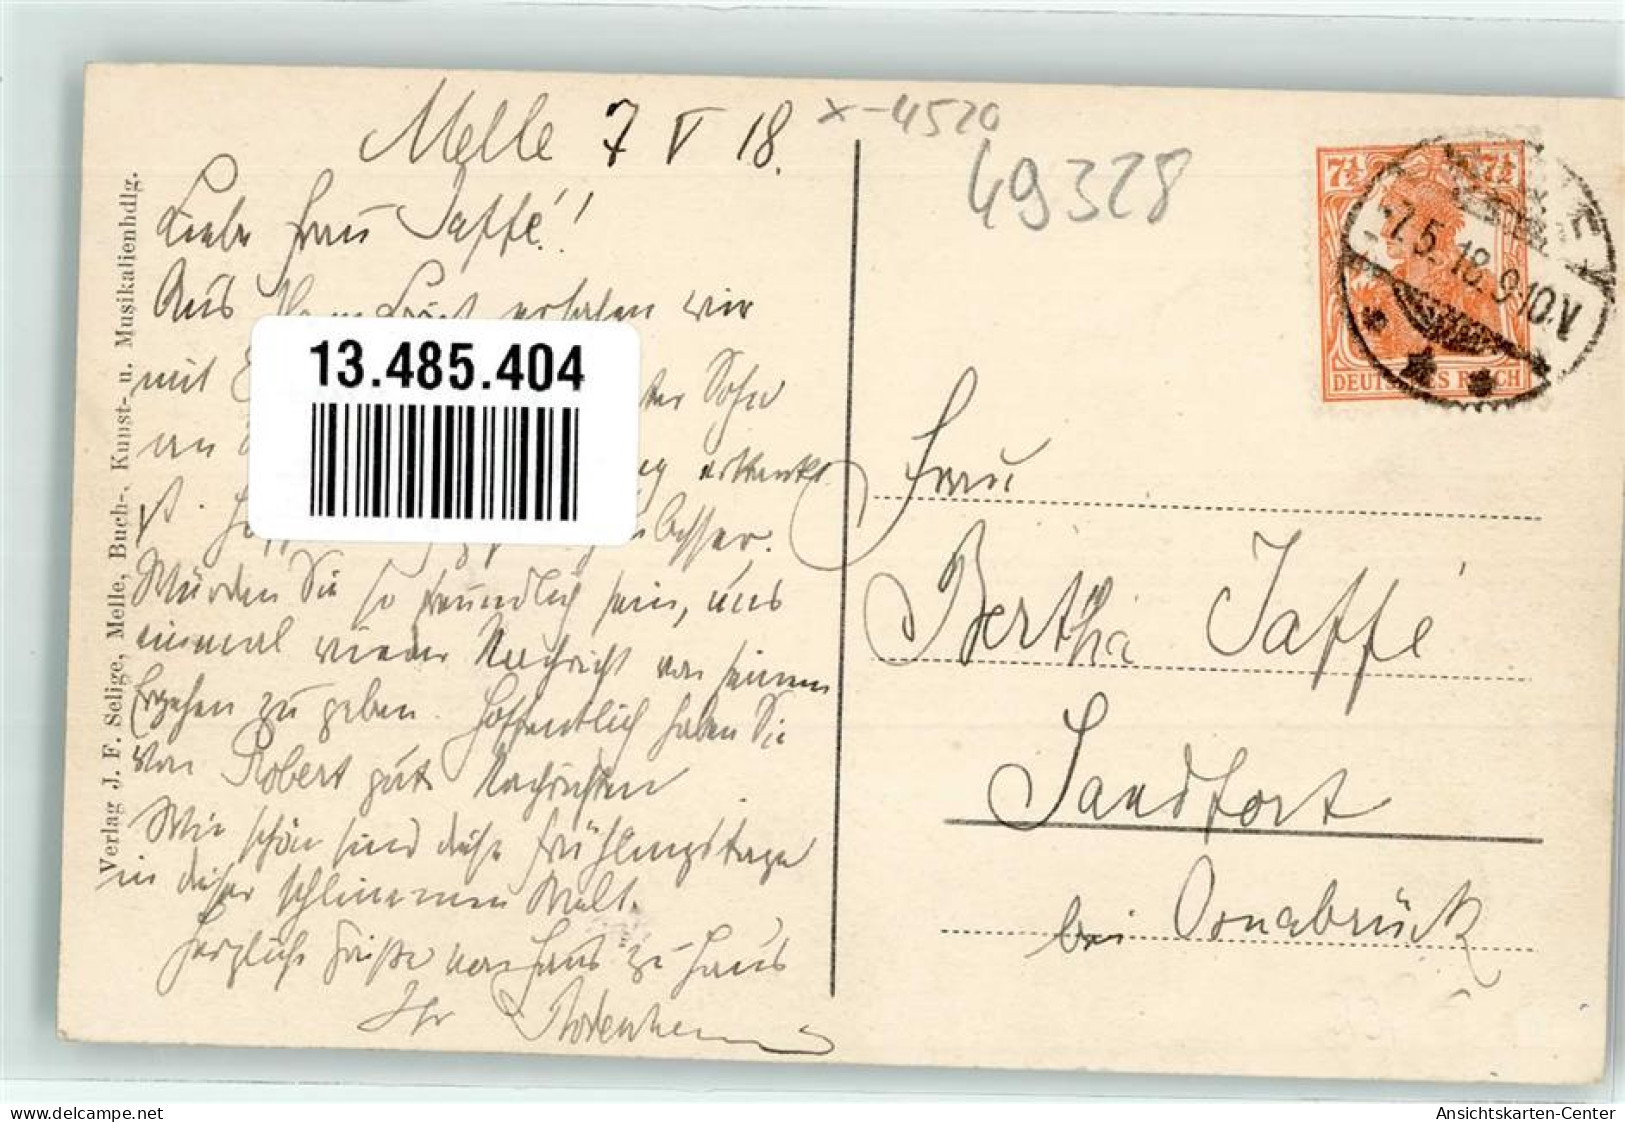 Melle 7 V 18.
x-4520
49328
Liebe Frau Jaffé!!
Aus erfahren wir
mit Sohn
an erkrankt
ist. besser.
Würden Sie so freundlich sein, uns
einmal wieder Nachricht von seinem
Ergehen zu geben. Hoffentlich haben Sie
von Robert gute Nachrichten
Wie schön sind diese Frühlingstage
in dieser schlimmen Welt.
Herzliche Grüße von Haus zu Haus
Ihr
13.485.404
Verlag J. F. Selige, Melle, Buch-, Kunst- u. Musikalienhdlg.
7½ 7½
DEUTSCHES REICH
-7.5.18.9-10.V
Frau
Bertha Jaffé
Sandfort
bei Osnabrück
delcampe.net
Ansichtskarten-Center